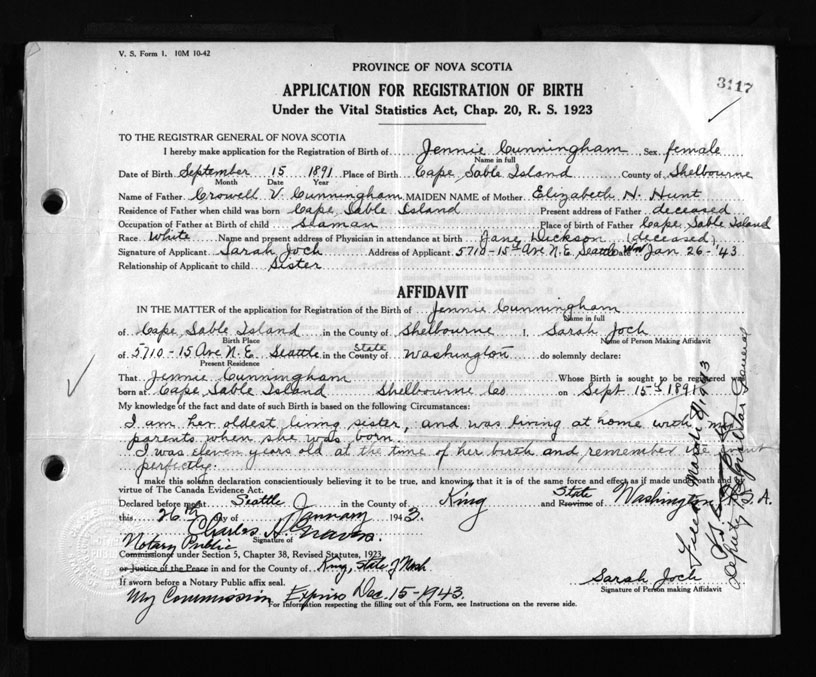 V. S. Form 1. 10M 10-42
PROVINCE OF NOVA SCOTIA
3117
APPLICATION FOR REGISTRATION OF BIRTH
Under the Vital Statistics Act, Chap. 20, R. S. 1923
TO THE REGISTRAR GENERAL OF NOVA SCOTIA
I hereby make application for the Registration of Birth of Jennie Cunningham Sex female
Name in full
Date of Birth September 15 1891 Place of Birth Cape Sable Island County of Shelbourne
Month Date Year
Name of Father Crowell V. Cunningham MAIDEN NAME of Mother Elizabeth H. Hunt
Residence of Father when child was born Cape Sable Island Present address of Father deceased
Occupation of Father at Birth of child Seaman Place of birth of Father Cape Sable Island
Race White Name and present address of Physician in attendance at birth Jane Dickson (deceased)
Signature of Applicant Sarah Joch Address of Applicant 5710-15th Ave N.E. Seattle Wn Jan 26-'43
Relationship of Applicant to child Sister
AFFIDAVIT
IN THE MATTER of the application for Registration of the Birth of Jennie Cunningham
Name in full
of Cape Sable Island in the County of Shelbourne I, Sarah Joch
Birth Place Name of Person Making Affidavit
of 5710-15 Ave N.E. Seattle in the County of State Washington do solemnly declare:
Present Residence
That Jennie Cunningham Whose Birth is sought to be registered
born at Cape Sable Island Shelbourne Co on Sept 15th 1891
My knowledge of the fact and date of such Birth is based on the following Circumstances:
I am her oldest living sister, and was living at home with my
parents when she was born.
I was eleven years old at the time of her birth and remember the event
perfectly.
I make this solemn declaration conscientiously believing it to be true, and knowing that it is of the same force and effect as if made under oath and by
virtue of The Canada Evidence Act.
Declared before me at Seattle in the County of King State and Province of Washington U.S.A.
this 26th day of January 1943.
Charles H.
Signature of
Notary Public
Commissioner under Section 5, Chapter 38, Revised Statutes, 1923
or Justice of the Peace in and for the County of King, State of Wash.
If sworn before a Notary Public affix seal.
Sarah Joch
Signature of Person making Affidavit
My Commission Expires Dec. 15-1943.
For Information respecting the filling out of this Form, see Instructions on the reverse side.
Filed March 8 1943
Deputy Registrar General